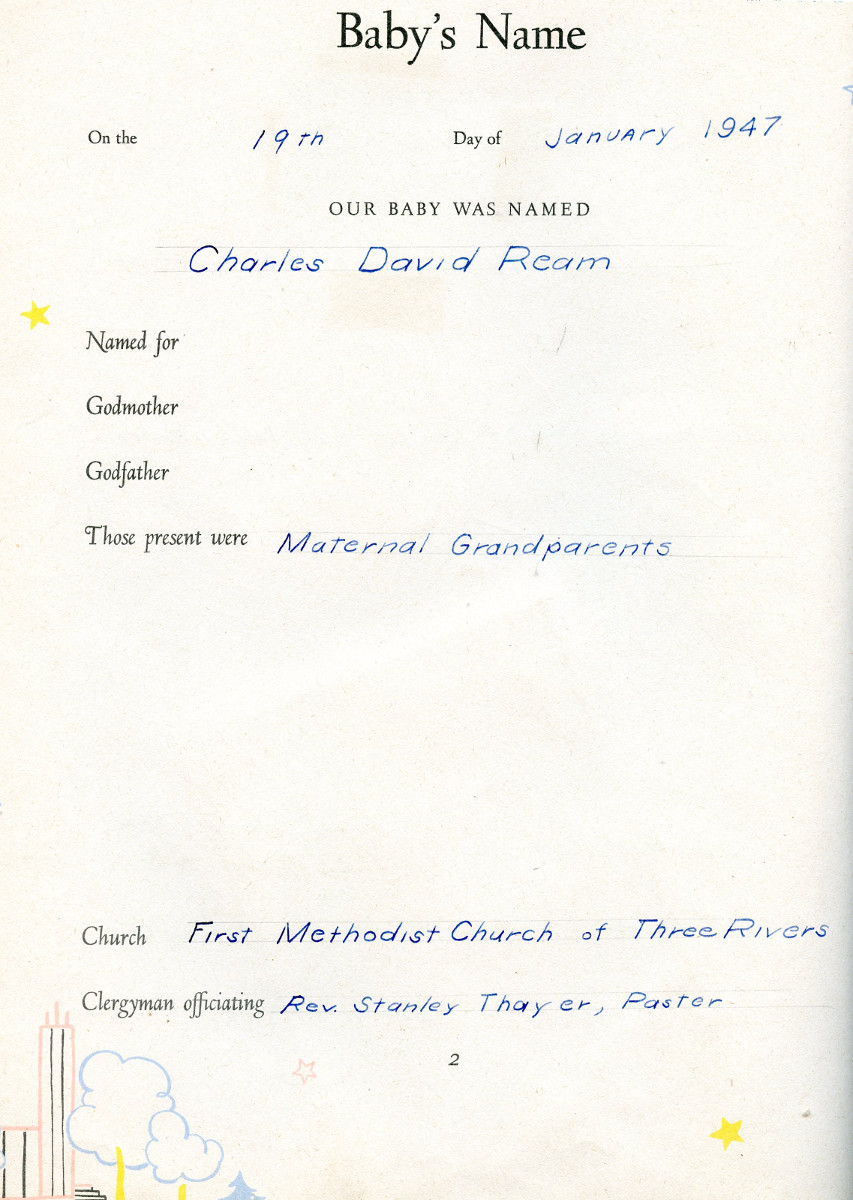 Baby's Name
On the 19th Day of January 1947
OUR BABY WAS NAMED
Charles David Ream
Named for
Godmother
Godfather
Those present were Maternal Grandparents
Church First Methodist Church of Three Rivers
Clergyman officiating Rev. Stanley Thayer, Paster
2